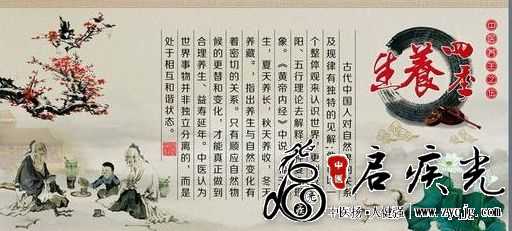 四季养生
中医养生之
古代中国人对自然
系
及规律有独特的见解
个整体观来认识世界
更
阳、五行理论去解释
象。《黄帝内经》中说
生，夏天养长，秋天养收，冬天
养藏》。，指出养生与自然变化有
着密切的关系。只有顺应自然物
候的更替和变化，才能真正做到
合理养生、益寿延年。中医认为
世界事物并非独立分离的，而是
处于相互和谐状态。
中医
启疾光
www.zyqjg.com